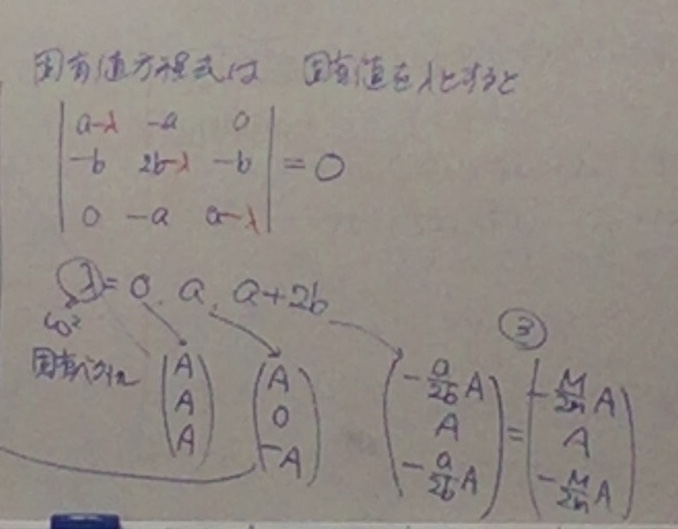 固有値方程式は 固有値をλとすると
| a-λ -a 0 |
| -b 2b-λ -b | = 0
| 0 -a a-λ |
λ = 0, a, a+2b
ω²
③
固有ベクトル
(A A A) (A 0 -A) (-a/2b A A -a/2b A) = (-M/2m A A -M/2m A)